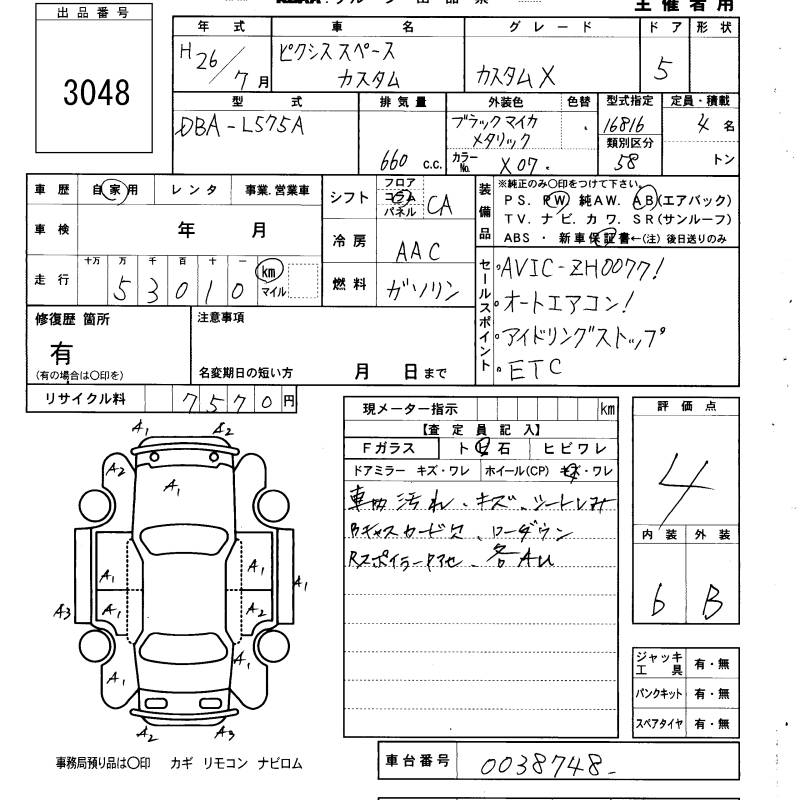 出品番号
3048
主催者用
年式 車名 グレード ドア 形状
H26/7月 ピクシススペース カスタム カスタムX 5
型式 排気量 外装色 色替 型式指定 定員・積載
DBA-L575A 660 c.c. ブラックマイカ メタリック 16816 4名
カラーNo. X07. 類別区分 58 トン
車歴 自家用 レンタ 事業.営業車
車検 年 月
走行 十万 万 千 百 十 一
53010 km マイル
シフト フロア コラム パネル CA
冷房 AAC
燃料 ガソリン
装備品 ※純正のみ〇印をつけて下さい。
PS. PW 純AW. AB(エアバック)
TV. ナビ. カワ. SR(サンルーフ)
ABS ・ 新車保証書←(注) 後日送りのみ
セールスポイント
・AVIC-ZH0077!
・オートエアコン!
・アイドリングストップ
・ETC
修復歴 箇所
有
(有の場合は〇印を)
注意事項
名変期日の短い方 月 日まで
リサイクル料 7570円
現メーター指示 km
【査定員記入】
Fガラス ト 石 ヒビワレ
ドアミラー キズ・ワレ ホイール(CP) キズ・ワレ
車内汚れ・キズ、シートしみ
ローダウン
各AU
評価点
4
内装 外装
6 B
A1 A2
A2 A1
A1 A1 A1
A3 A1 A2
A1 A1
A2 A3
ジャッキ工具 有・無
パンクキット 有・無
スペアタイヤ 有・無
事務局預り品は〇印 カギ リモコン ナビロム
車台番号 0038748